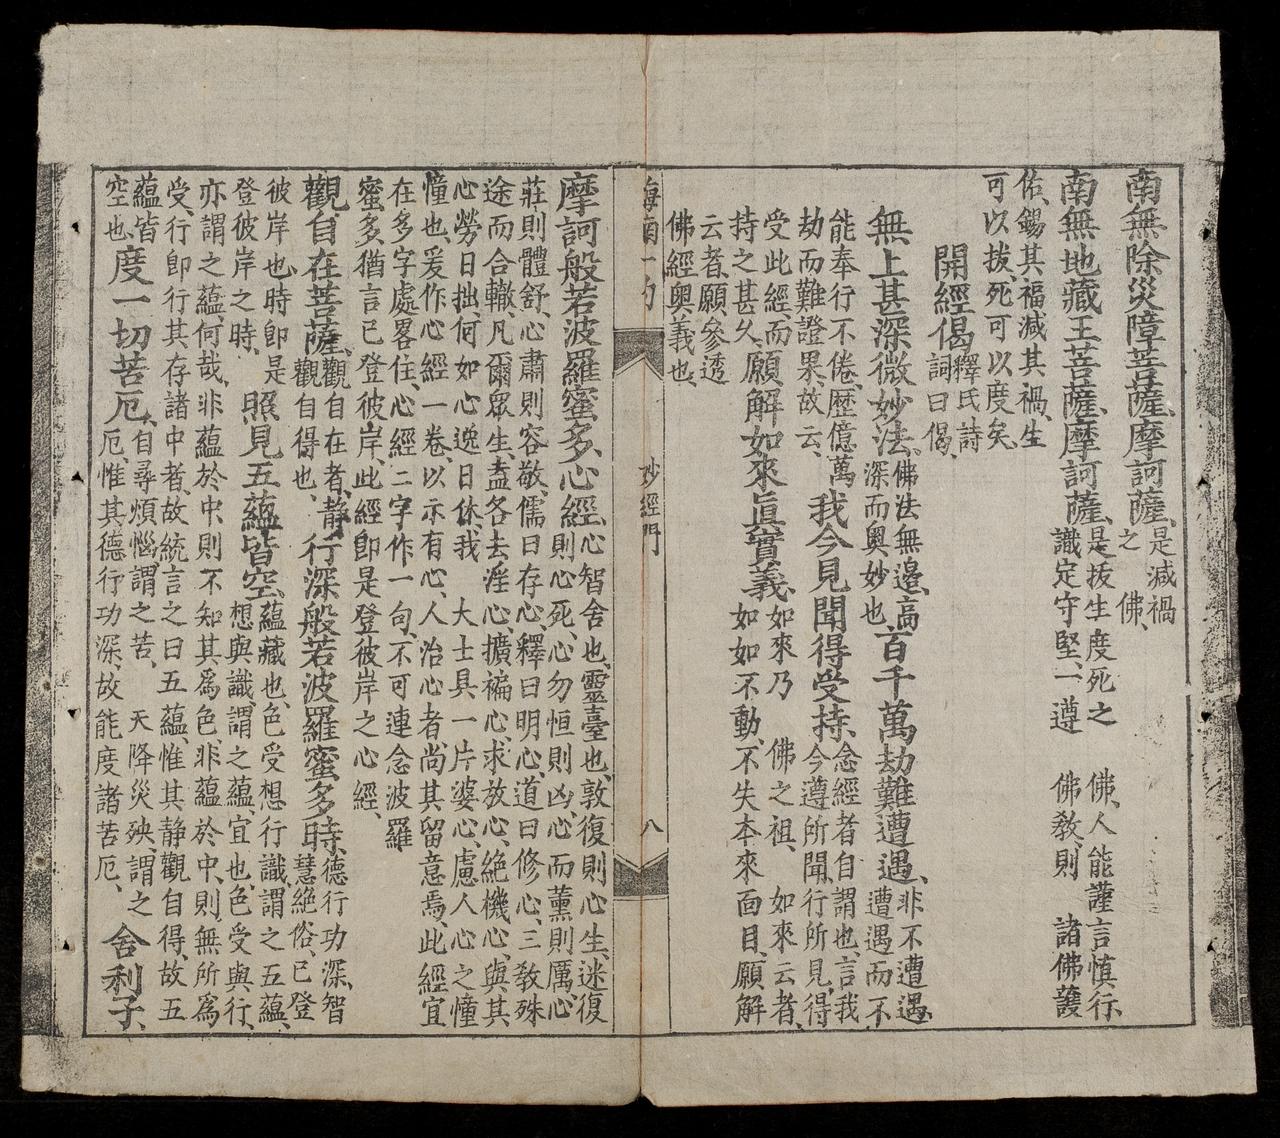 南無除災障菩薩、摩訶薩、
是減禍
之 佛、
南無地藏王菩薩、摩訶薩、
是拔生度死之 佛、人能謹言慎行、
識定守堅、一遵 佛教、則 諸佛護
佑、錫其福減其禍、生
可以拔、死可以度矣、
開經偈
釋氏詩
詞曰偈、
無上甚深微妙法、
佛法無邊、高
深而奧妙也
百千萬劫難遭遇、
非不遭遇、
遭遇而不
能奉行不倦、歷億萬
劫而難證果、故云、
我今見聞得受持、
念經者自謂也、言我
今遵所聞、行所見、得
受此經、而
持之甚久、
願解如來眞實義、
如來乃 佛之祖、 如來云者、
如如不動、不失本來面目、願解
云者、願參透
佛經奧義也、
海南一勺
妙經門
八
摩訶般若波羅蜜多心經、
心智舍也、靈臺也、敦復則心生、迷復
則心死、心勿恒則凶、心而薰則厲、心
莊則體舒、心肅則容敬、儒曰存心、釋曰明心、道曰修心、三敎殊
途而合轍、凡爾眾生、盍各去淫心、擴褊心、求放心、絕機心、與其
心勞日拙、何如心逸日休、我 大士具一片婆心、慮人心之憧
憧也、爰作心經一卷、以示有心人、治心者、尚其留意焉、此經宜
在多字處畧住、心經二字作一句、不可連念波羅
蜜多、猶言已登彼岸、此經即是登彼岸之心經、
觀自在菩薩、
觀自在者、靜
觀自得也、
行深般若波羅蜜多時、
德行功深、智
慧絕俗、已登
彼岸也、時即是
登彼岸之時、
照見五蘊皆空、
蘊藏也、色受想行識、謂之五蘊、
想與識、謂之蘊、宜也、色受與行、
亦謂之蘊、何哉、非蘊於中、則不知其爲色、非蘊於中、則無所爲
受、行即行其存諸中者、故統言之曰五蘊、惟其靜觀自得、故五
蘊皆
空也
度一切苦厄、
自尋煩惱、謂之苦、 天降災殃、謂之
厄、惟其德行功深、故能度諸苦厄、
舍利子、